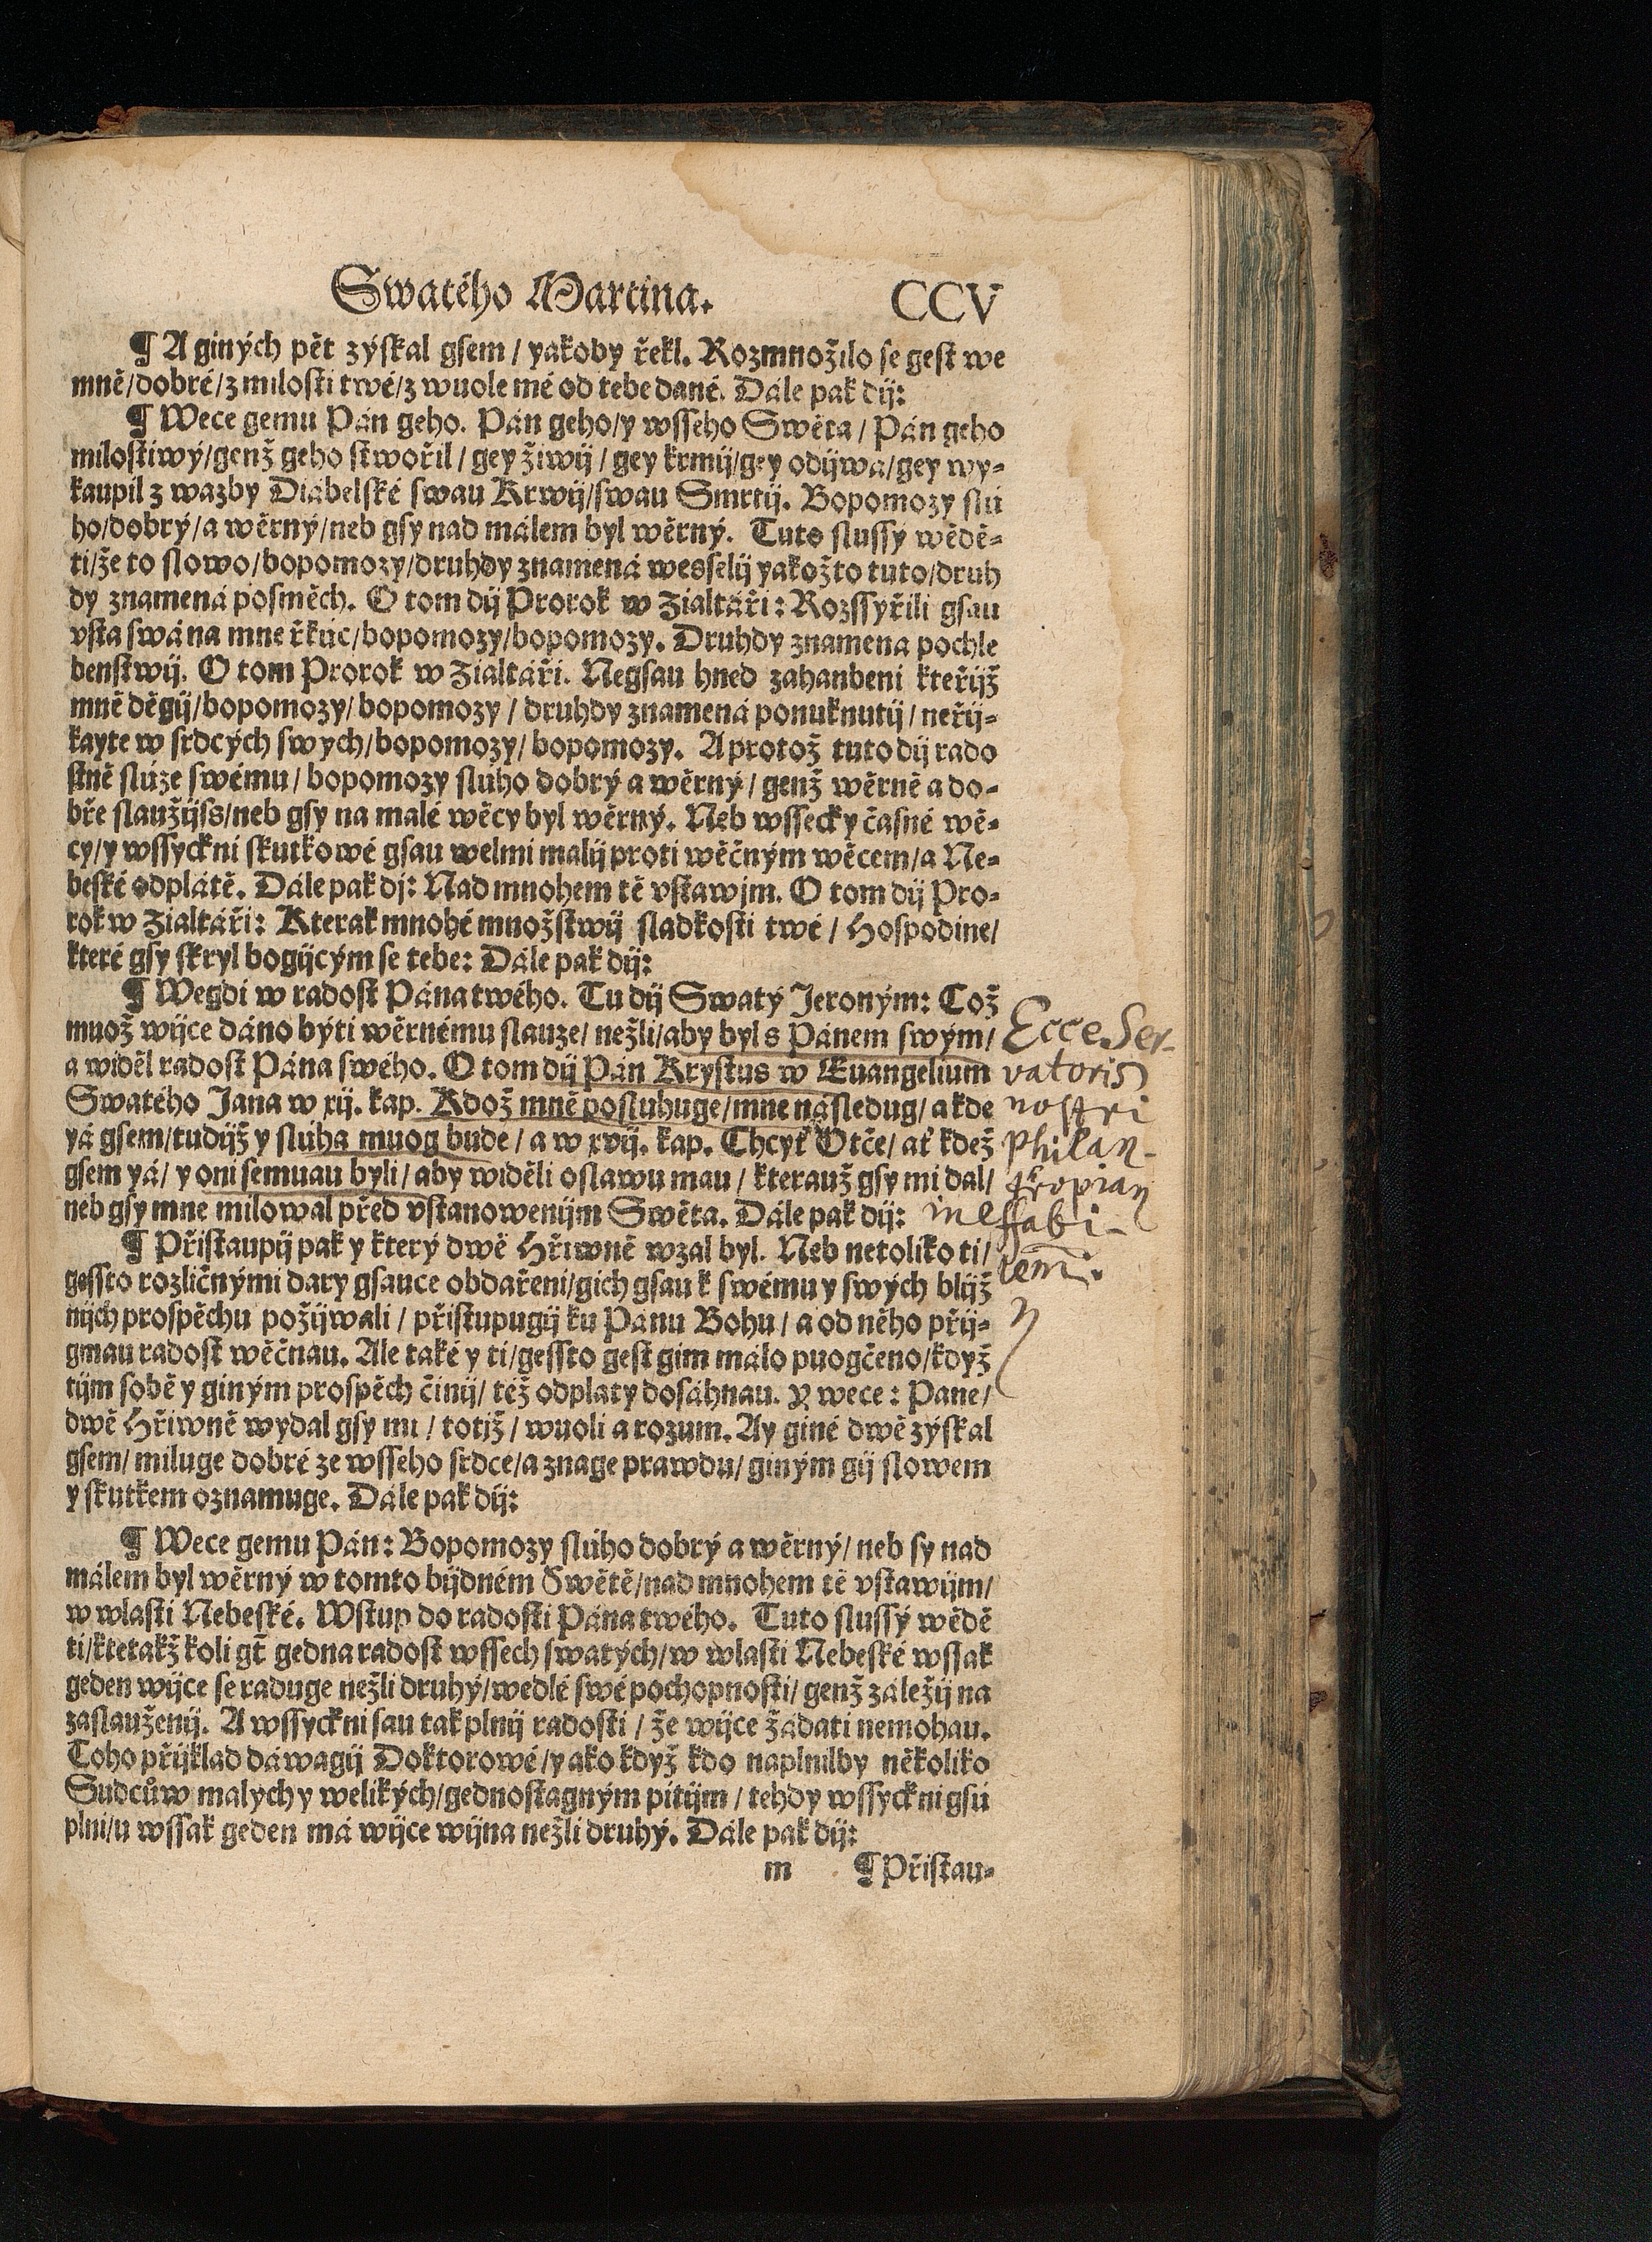 Swatého Martina. CCV
¶ A giných pět zýskal gsem / yakoby řekl. Rozmnožilo se gest we
mně/dobré/z milosti twé/z wuole mé od tebe dané. Dále pak dij:
¶ Wece gemu Pán geho. Pán geho/y wsseho Swěta / Pán geho
milostiwý/genž geho stwořil / gey žiwij / gey krmij/gey odijwá/gey wy-
kaupil z wazby Diábelské swau Krwij/swau Smrtij. Bopomozy slú
ho/dobrý/a wěrný/neb gsy nad málem byl wěrný. Tuto slussý wědě-
ti/že to slowo/bopomozy/druhdy znamená wesselij yakožto tuto/druh
dy znamená posměch. O tom dij Prorok w Žialtáři: Rozssyřili gsau
vsta swá na mne řkúc/bopomozy/bopomozy. Druhdy znamená pochle
benstwij. O tom Prorok w Žialtáři. Negsau hned zahanbeni kteřijž
mně děgij/bopomozy/bopomozy / druhdy znamená ponuknutij / neřij-
kayte w srdcých swych/bopomozy/bopomozy. A protož tuto dij rado
stně slúze swému / bopomozy slúho dobrý a wěrný / genž wěrně a do-
bře slaužijss/neb gsy na malé wěcy byl wěrný. Neb wssecky časné wě-
cy/y wssyckni skutkowé gsau welmi malij proti wěčným wěcem/a Ne-
beské odplátě. Dále pak dj: Nad mnohem tě vstawjm. O tom dij Pro-
rok w Žialtáři: Kterak mnohé množstwij sladkosti twé / Hospodine/
které gsy skryl bogijcým se tebe: Dále pak dij:
¶ Wegdi w radost Pána twého. Tu dij Swatý Jeroným: Což
muož wijce dáno býti wěrnému slauze/ nežli/aby byl s Pánem swým/
a widěl radost Pána swého. O tom dij Pán Krystus w Euangelium
Swatého Jana w xij. kap. Kdož mně posluhuge/mne následug/ a kde
yá gsem/tudijž y slúha muog bude / a w xvij. kap. Chcyť Otče/ ať kdež
gsem yá/ y oni semnau byli/ aby widěli oslawu mau / kterauž gsy mi dal/
neb gsy mne milowal před vstanowenijm Swěta. Dále pak dij:
Ecce Ser-
vatoris
nostri
philan-
tropian
ineffabi-
lem.
¶ Přistaupij pak y který dwě Hřiwně wzal byl. Neb netoliko ti/
gessto rozličnými dary gsauce obdařeni/gich gsau k swému y swých blijž
nijch prospěchu požijwali / přistupugij ku Pánu Bohu / a od něho přij-
gmau radost wěčnau. Ale také y ti/gessto gest gim málo puogčeno/když
tijm sobě y giným prospěch činij/ též odplaty dosáhnau. Y wece: Pane/
dwě Hřiwně wydal gsy mi / totjž / wuoli a rozum. Ay giné dwě zýskal
gsem/ miluge dobré ze wsseho srdce/a znage prawdu/ giným gij slowem
y skutkem oznamuge. Dále pak dij:
¶ Wece gemu Pán: Bopomozy slúho dobrý a wěrný/ neb sy nad
málem byl wěrný w tomto bijdném Swětě/nad mnohem tě vstawijm/
w wlasti Nebeské. Wstup do radosti Pána twého. Tuto slussý wědě
ti/ktetakž koli gt̄ gedna radost wssech swatých/w wlasti Nebeské wssak
geden wijce se raduge nežli druhý/wedlé swé pochopnosti/ genž záležij na
zaslauženij. A wssyckni sau tak plnij radosti / že wijce žádati nemohau.
Toho přijklad dáwagij Doktorowé/yako když kdo naplnilby několiko
Sudcůw malych y welikých/gednostagným pitijm / tehdy wssyckni gsú
plni/u wssak geden má wijce wijna nežli druhý. Dále pak dij:
m ¶ Přistau-